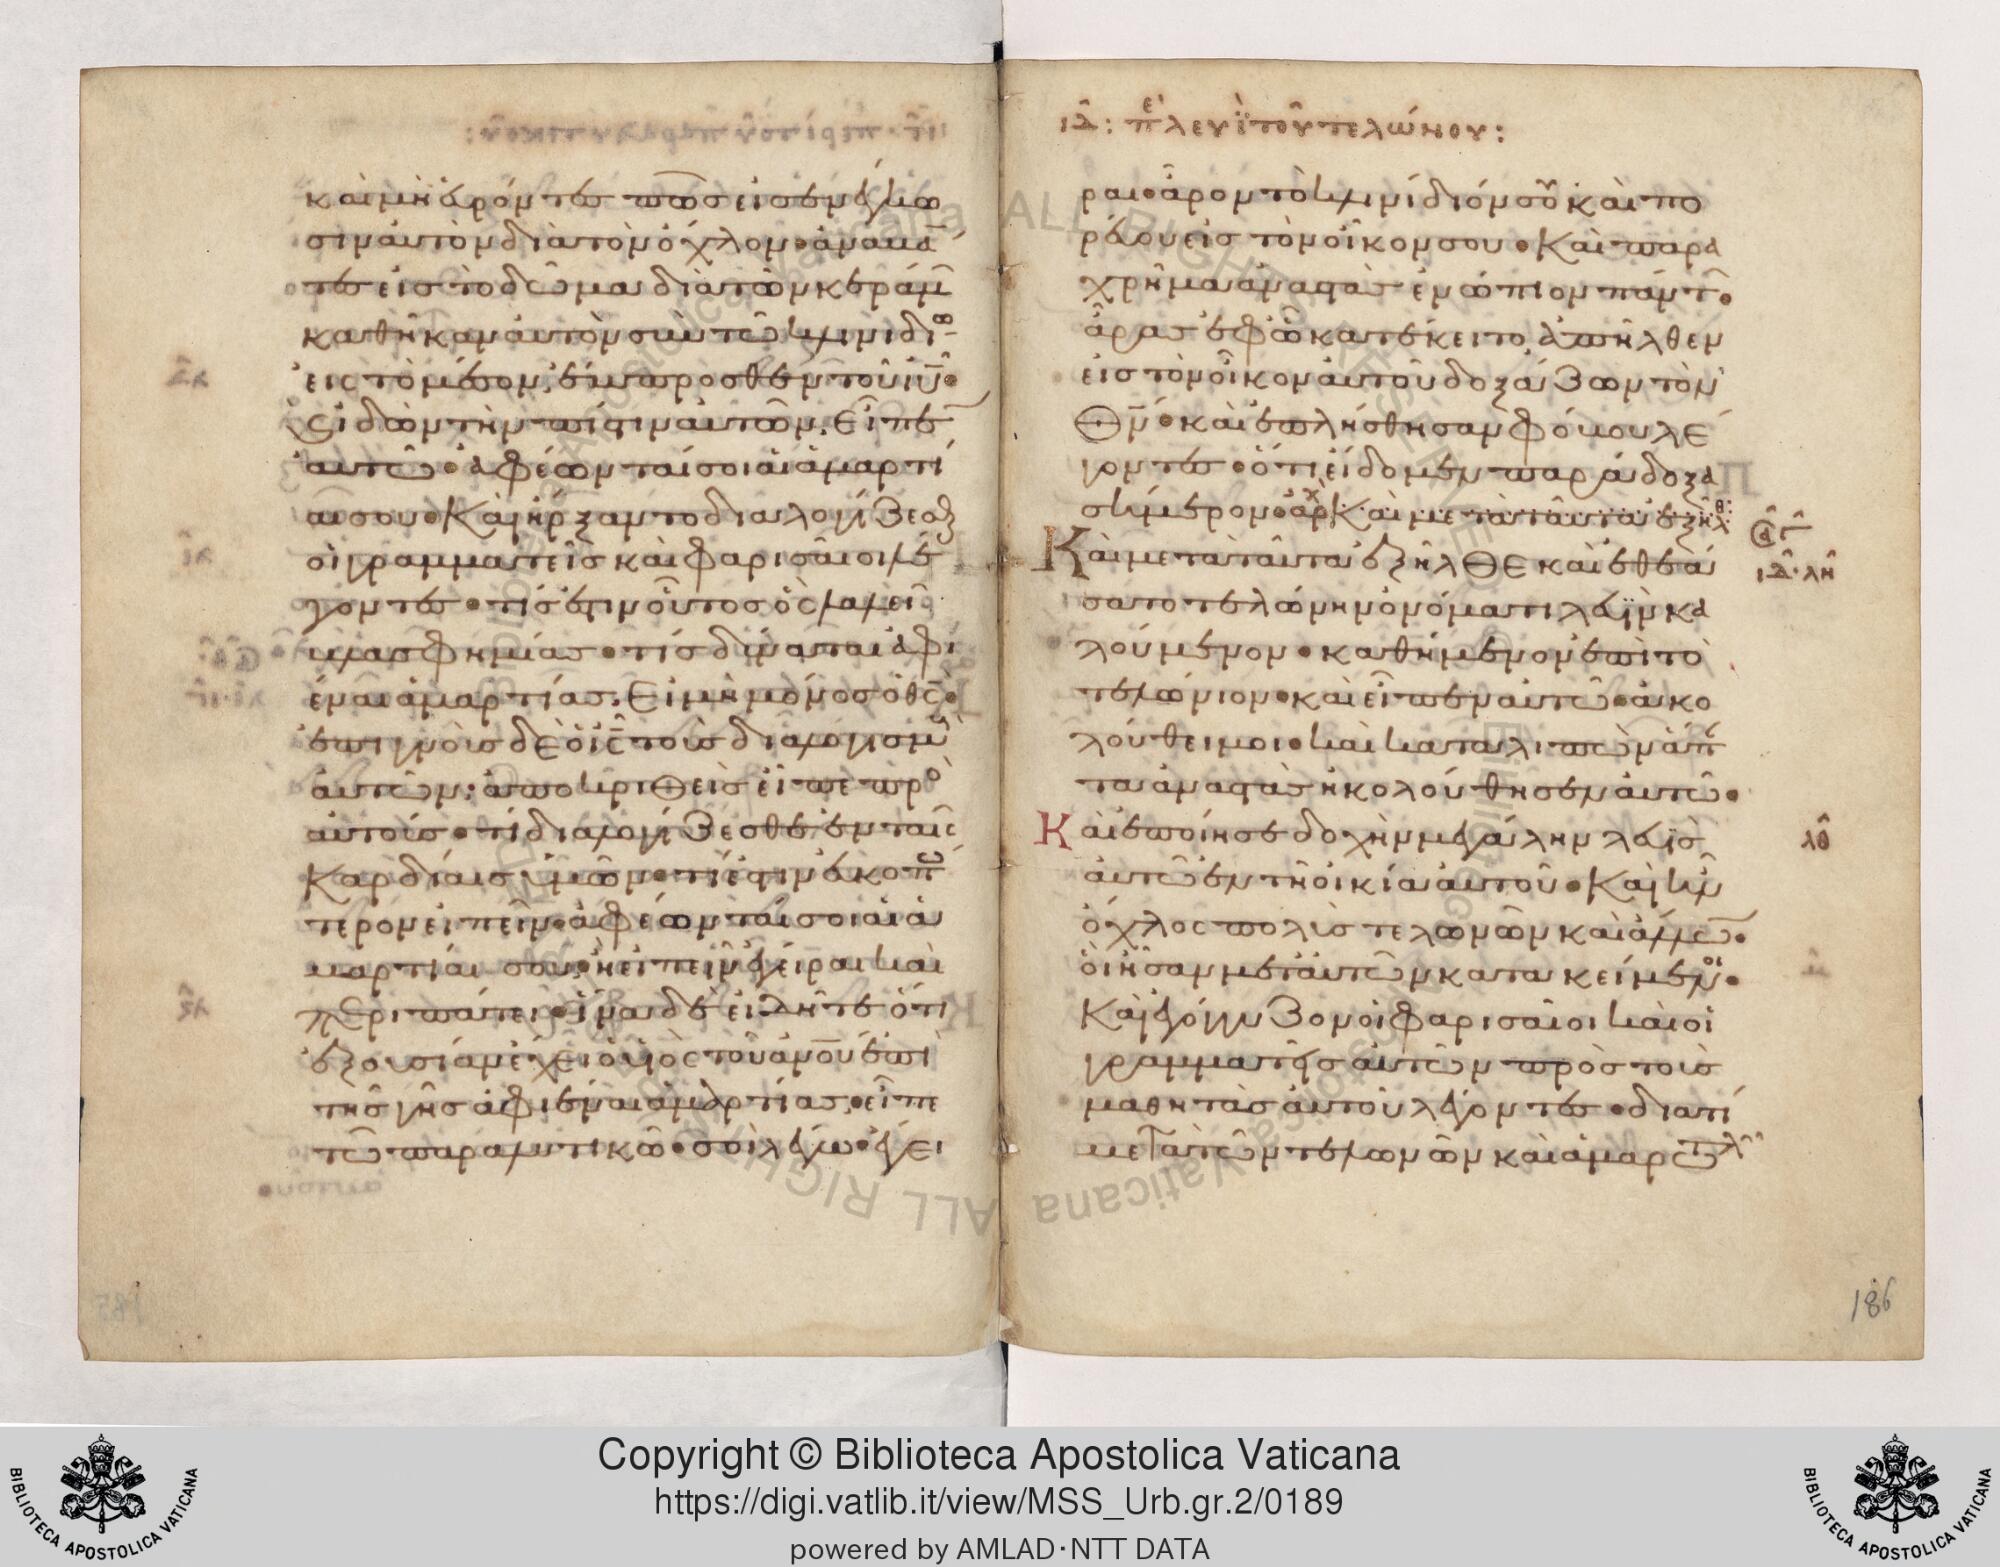 καὶ μὴ εὑρόντες πῶς εἰσενέγκω
σιν αὐτὸν διὰ τὸν ὄχλον· ἀναβά
τες εἰς τὸ δῶμα διὰ τῶν κεράμ
καθῆκαν αὐτὸν σὺν τῶ κλινιδίω
εἰς τὸ μέσον, ἔμπροσθεν τοῦ ιῦ·
ἰδὼν τὴν πίστιν αὐτῶν. εἶπεν
αὐτῶ· ἀφέωνταί σοι αἱ ἁμαρτί
αι σου· Καὶ ἤρξαντο διαλογίζεσθ
οἱ γραμματεῖς καὶ φαρισαῖοι λέ
γοντες· τίς ἐστιν οὗτος ὃς λαλεῖ
βλασφημίας· τίς δύναται ἀφι
έναι ἁμαρτίας. εἰ μὴ μόνος ὁ θς·
ἐπιγνοὺς δὲ ὁ ις τοὺς διαλογισμοὺ
αὐτῶν· ἀποκριθεὶς εἶπε πρὸ
αὐτούς· τί διαλογίζεσθε ἐν ταῖς
καρδίαις ὑμῶν· τί ἐστιν εὐκοπώ
τερον εἰπεῖν· ἀφέωνταί σοι αἱ ἁ
μαρτίαι σου· ἢ εἰπεῖν ἔγειραι καὶ
περιπάτει· ἵνα δὲ εἰδῆτε ὅτι
ἐξουσίαν ἔχει ὁ υἱὸς τοῦ ανου ἐπὶ
τῆς γῆς ἀφιέναι ἁμαρτίας· εἶπε
τῶ παραλυτικῶ· σοὶ λέγω· ἔγει
ιδ: πε λευῒ τοῦ τελώνου:
ραι· ἆρον τὸ κλινίδιόν σου καὶ πο
ρεύου εἰς τὸν οἶκον σου· Καὶ παρα
χρῆμα ἀναστὰς ἐνώπιον πάντ·
ἄρας ἐφ' ὧ κατέκειτο, ἀπῆλθεν
εἰς τὸν οἶκον αὐτοῦ δοξάζων τὸν
θν· καὶ ἐπλήσθησαν φόβου λέ
γοντες· ὅτι εἴδομεν παράδοξα
σήμερον· ἀρχ Καὶ μετὰ ταῦτα ἐξῆλθ:
Καὶ μετὰ ταῦτα ἐξῆλθε καὶ ἐθεά
σατο τελώνην ὀνόματι λευῒν κα
λούμενον· καθήμενον ἐπὶ τὸ
τελώνιον· καὶ εἶπεν αὐτῶ· ἀκο
λούθει μοι· καὶ καταλιπὼν ἅπ
τα ἀναστὰς ἠκολούθησεν αὐτῶ·
Καὶ ἐποίησε δοχὴν μεγάλην λευῒς
αὐτῶ ἐν τῆ οἰκία αὐτοῦ· Καὶ ἦν
ὄχλος πολὺς τελωνῶν καὶ ἄλλων·
οἳ ἦσαν μετ' αὐτῶν κατακείμενοι·
Καὶ ἐγόγγυζον οἱ φαρισαῖοι καὶ οἱ
γραμματεῖς αὐτῶν πρὸς τοὺς
μαθητὰς αὐτοῦ λέγοντες· διατί
μετὰ τῶν τελωνῶν καὶ ἁμαρτωλ
λθ
186
Copyright © Biblioteca Apostolica Vaticana
https://digi.vatlib.it/view/MSS_Urb.gr.2/0189
powered by AMLAD·NTT DATA
BIBLIOTECA APOSTOLICA VATICANA
BIBLIOTECA APOSTOLICA VATICANA